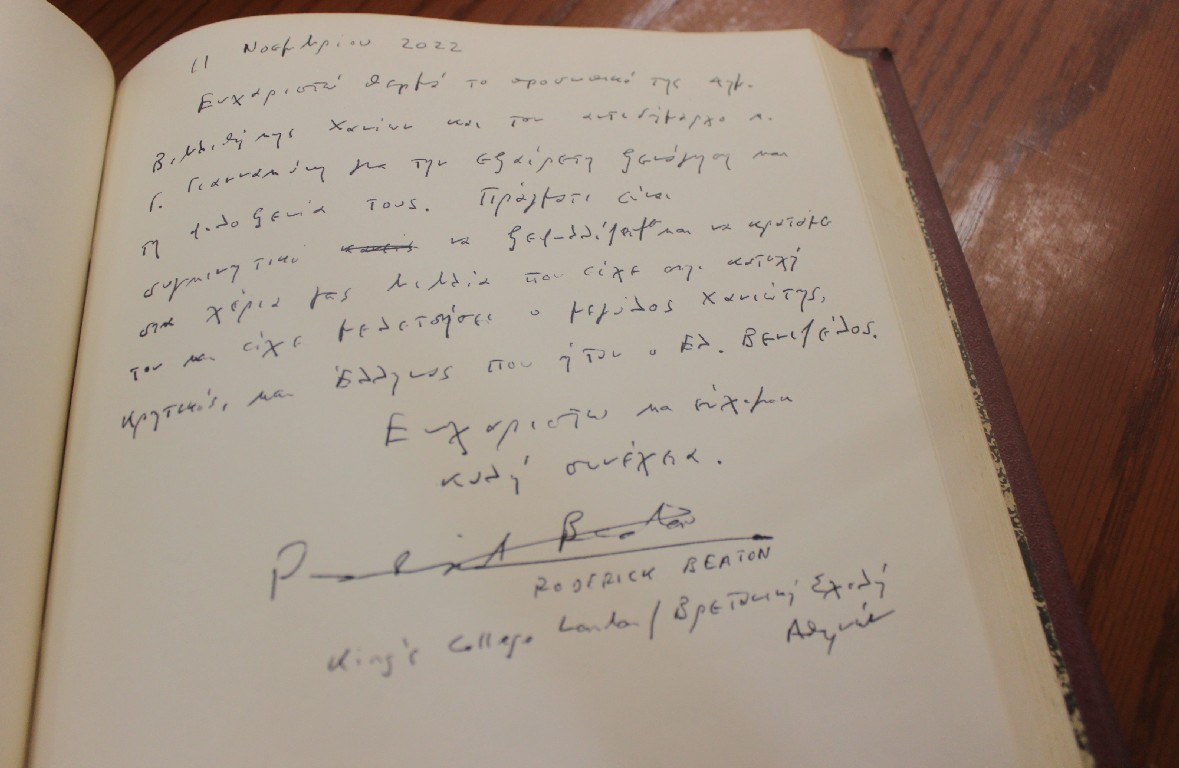 11 Νοεμβρίου 2022
Ευχαριστώ θερμά το προσωπικό της Δημ.
Βιβλιοθήκης Χανίων και τον αντιδήμαρχο κ.
Γ. Γιαννακάκη για την εξαίρετη ξενάγηση και
τη φιλοξενία τους. Πράγματι είναι
συγκινητικό να και να κρατάμε
στα χέρια μας βιβλία που είχε στην κατοχή
του και είχε μελετήσει ο μεγάλος Χανιώτης,
Κρητικός, και Έλληνας που ήταν ο Ελ. Βενιζέλος.
Ευχαριστώ και εύχομαι
καλή συνέχεια.
RODERICK BEATON
King's College London / Βρετανική Σχολή
Αθηνών